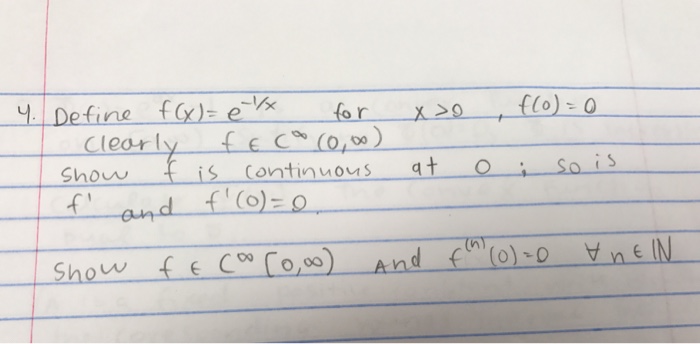 4. Define f(x) = e^{-1/x} for x>0 , f(0) = 0
clearly f ∈ C^∞ (0,∞)
show f is continuous at 0 ; so is
f' and f'(0) = 0.
show f ∈ C^∞ [0,∞) And f^{(n)}(0) = 0 ∀ n ∈ ℕ